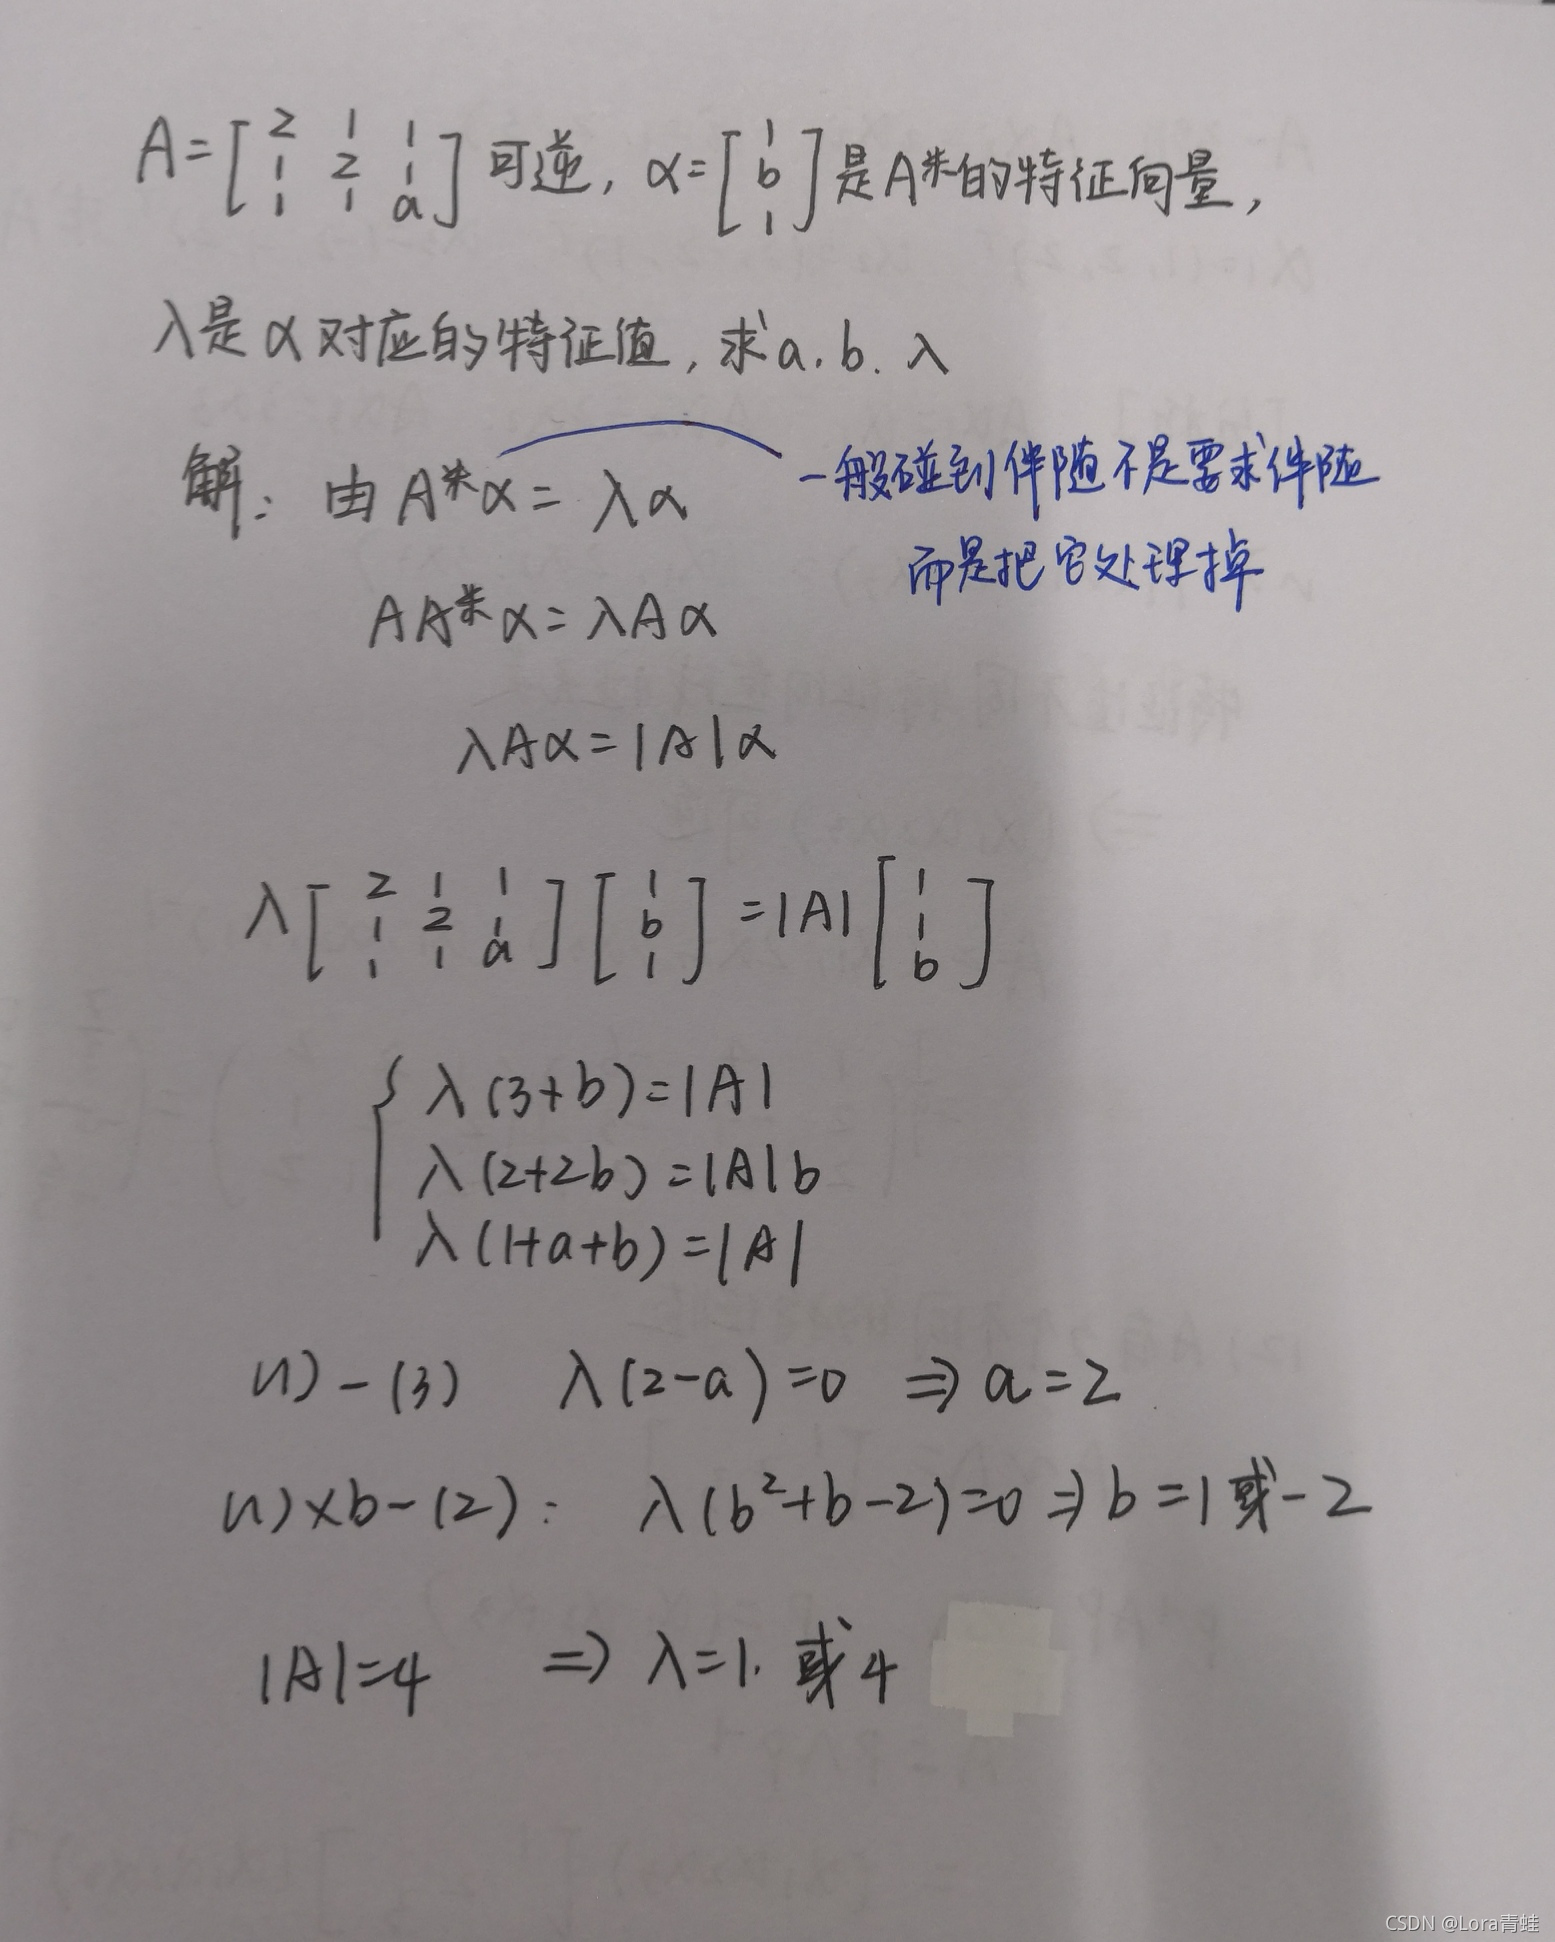 A=[2 1 1 1 2 1 1 1 a]可逆, α=[1 b 1]是A*的特征向量,
λ是α对应的特征值,求a.b.λ
解: 由A*α=λα 一般碰到伴随不是要求伴随
而是把它处理掉
AA*α=λAα
λAα=|A|α
λ[2 1 1 1 2 1 1 1 a][1 b 1]=|A|[1 1 b]
λ(3+b)=|A|
λ(2+2b)=|A|b
λ(1+a+b)=|A|
(1)-(3) λ(2-a)=0 ⇒ a=2
(1)×b-(2): λ(b²+b-2)=0⇒b=1或-2
|A|=4 ⇒ λ=1.或4
CSDN @Lora青蛙